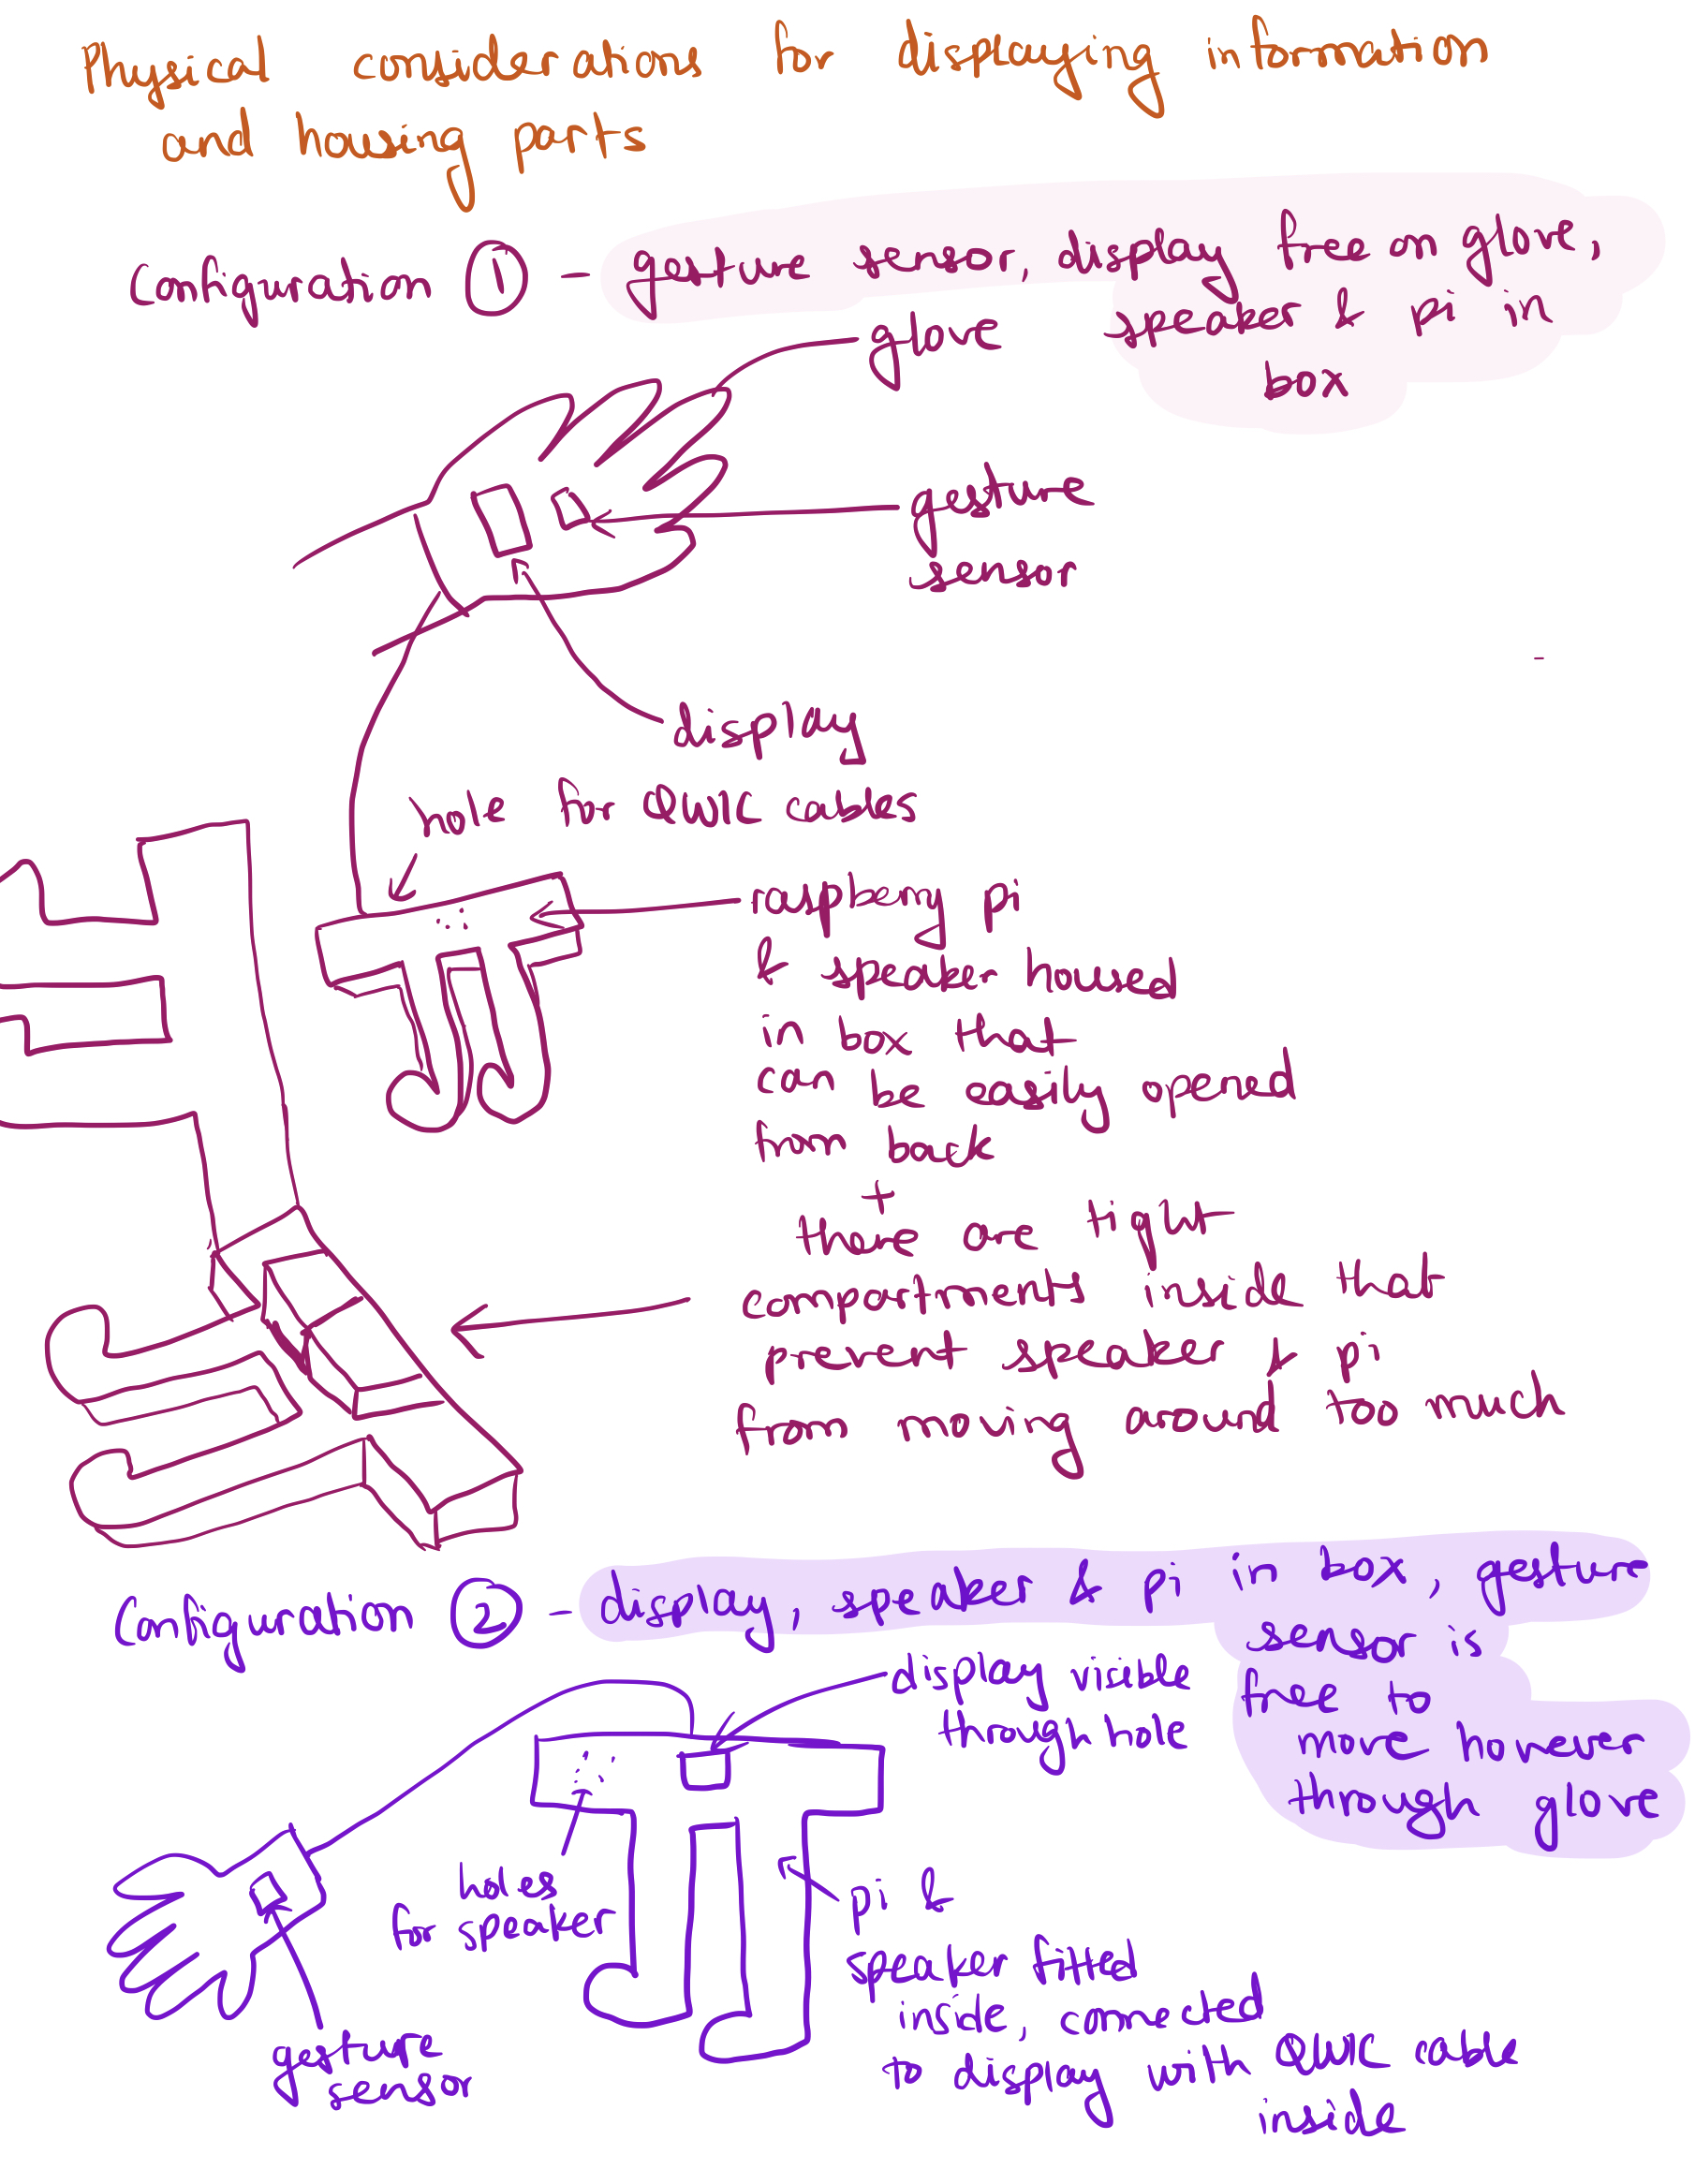 Physical considerations for displaying information
and housing parts
Configuration ① - gesture sensor, display free on glove,
speaker & pi in
box
glove
gesture
sensor
display
hole for QWIC cables
raspberry pi
& speaker housed
in box that
can be easily opened
from back
+
there are tight
compartments inside that
prevent speaker & pi
from moving around too much
Configuration ② - display, speaker & pi in box, gesture
sensor is
free to
move however
through glove
display visible
through hole
holes
for speaker
gesture
sensor
pi &
speaker fitted
inside, connected
to display with QWIC cable
inside